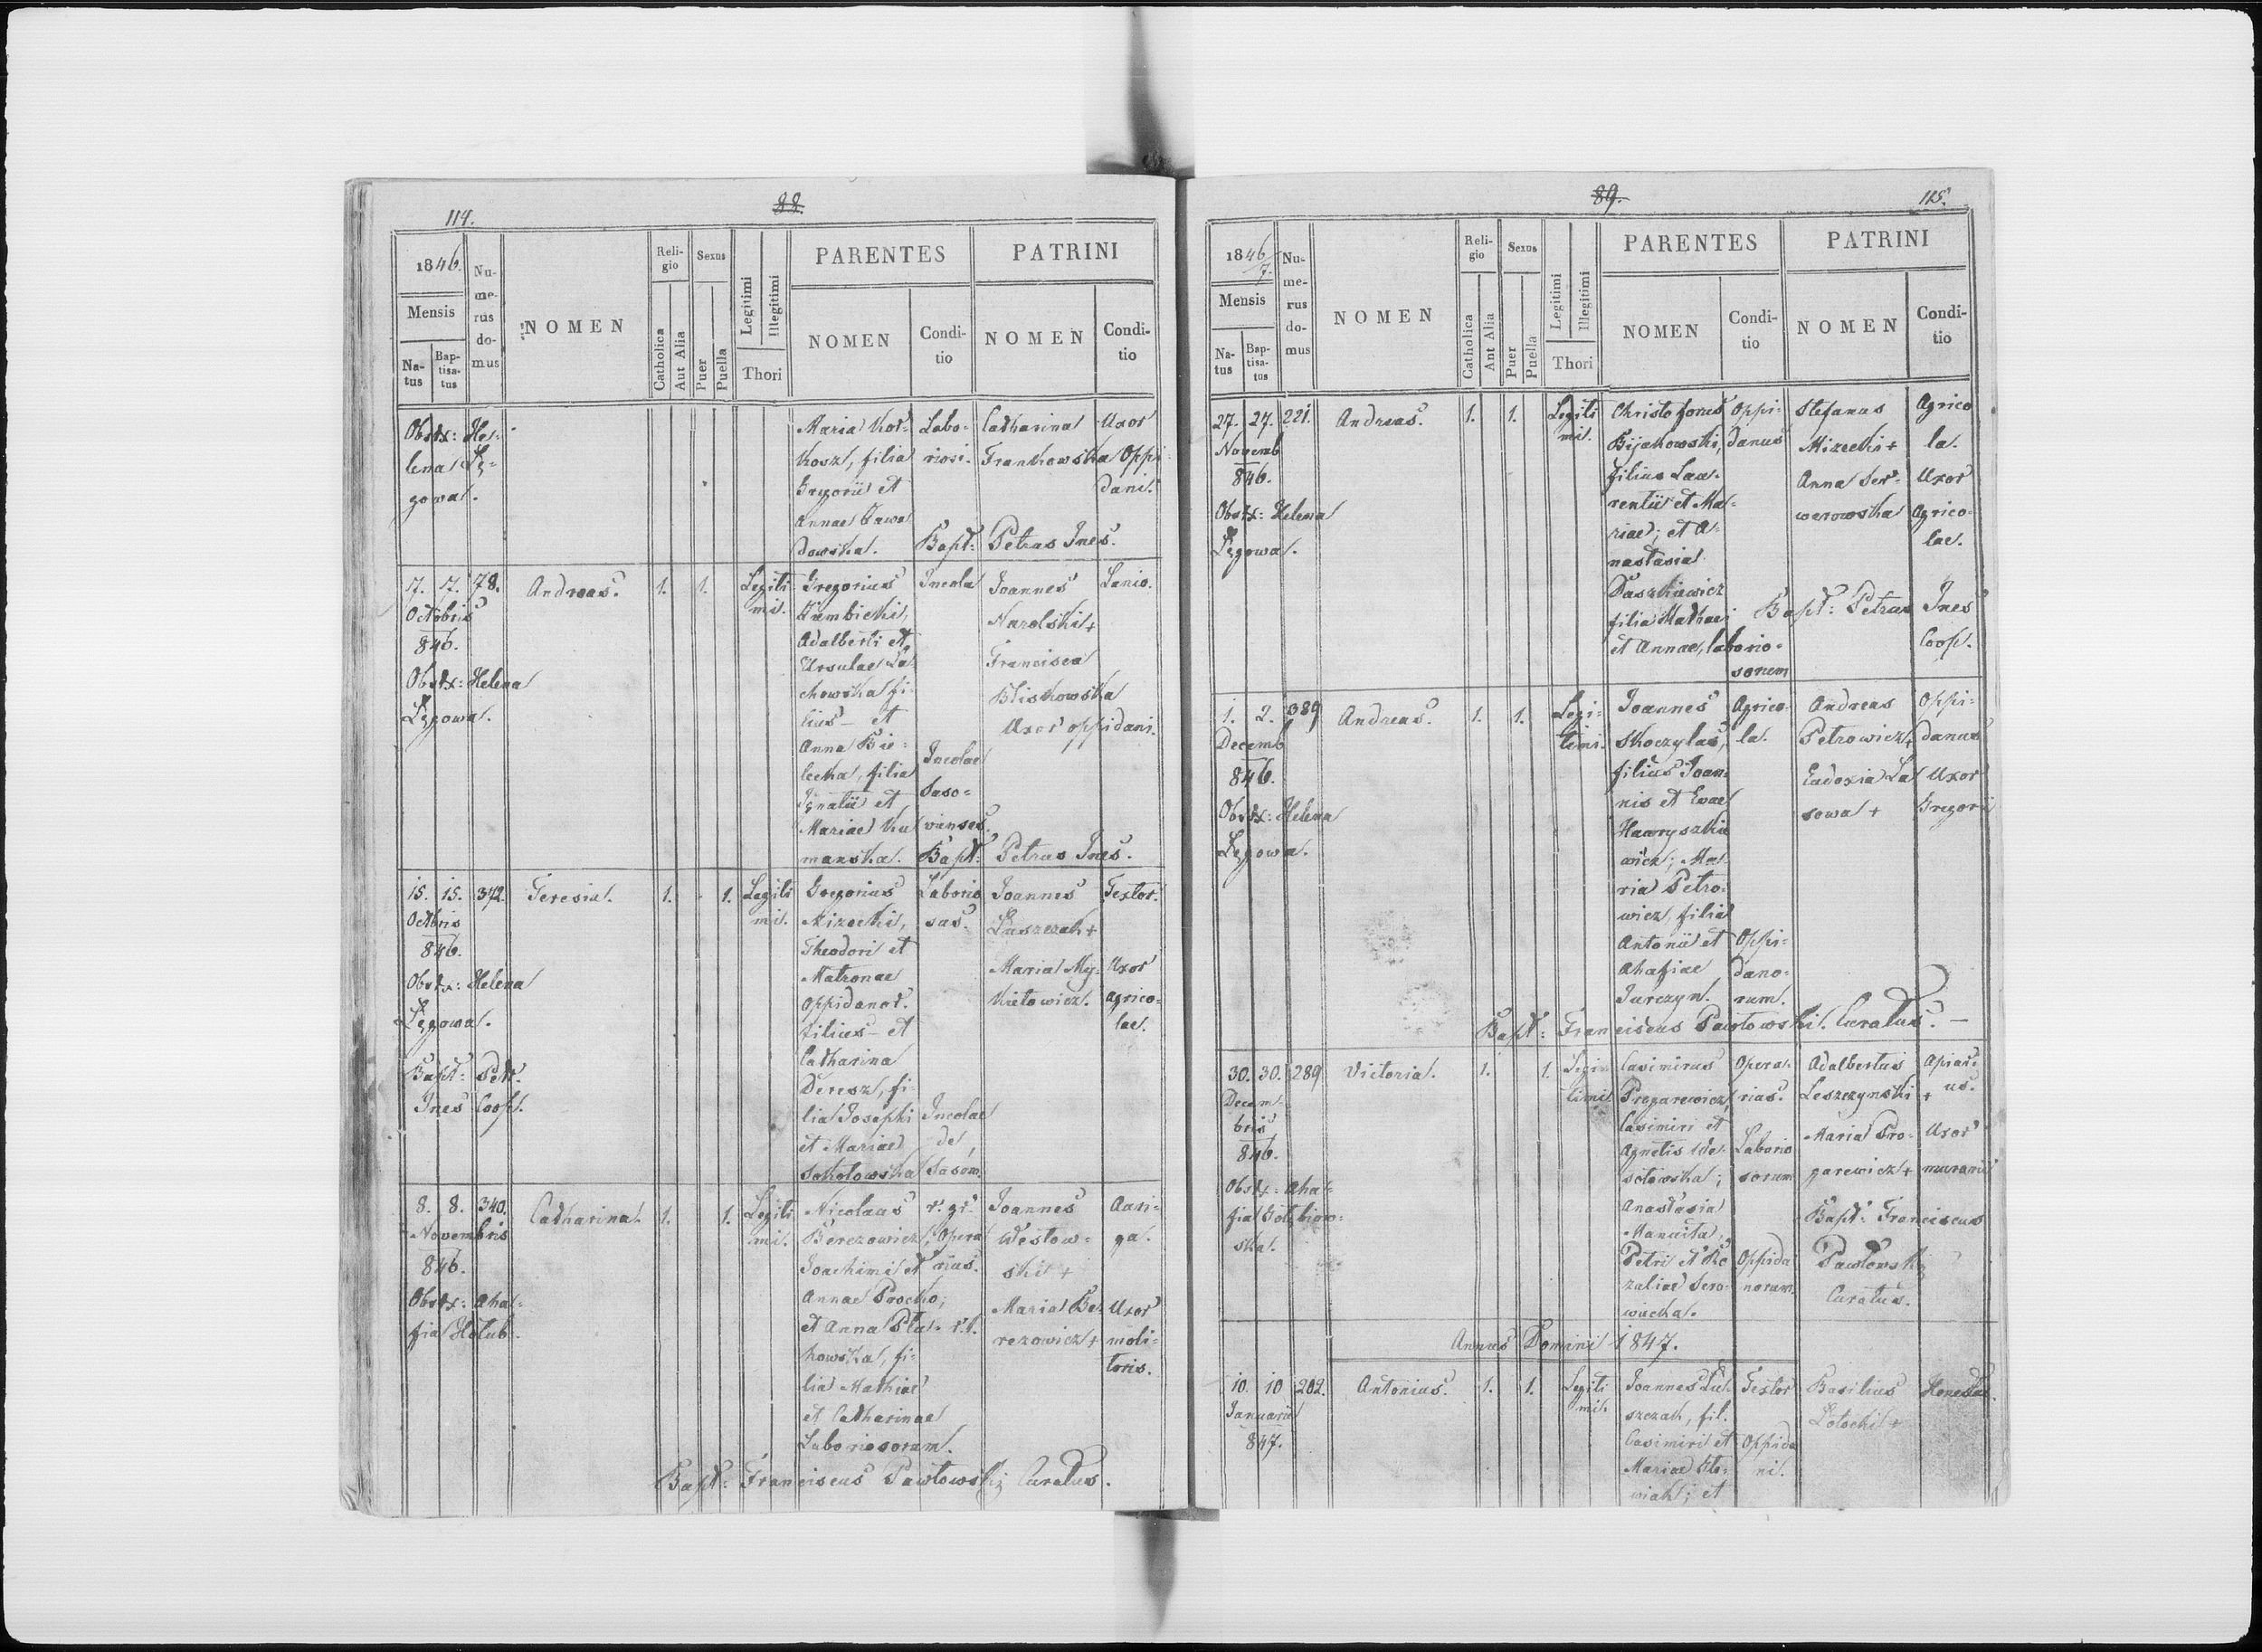 114.
88.
1846.
Mensis
Na-
tus
Bap-
tisa-
tus
Nu-
me-
rus
do-
mus
NOMEN
Reli-
gio
Catholica
Aut Alia
Sexus
Puer
Puella
Legitimi
Illegitimi
Thori
PARENTES
NOMEN
Condi-
tio
PATRINI
NOMEN
Condi-
tio
Obstx: He-
lena Lę-
gowa.
Maria Kor-
kosz, filia
Gregorii et
Annae Zawa
dowska.
Labo-
riosi.
Catharina
Frankowska
Uxor
Oppi
dani.
Bapt: Petrus Ines.
7. 7. 78.
Octobris
846.
Obstx: Helena
Lęgowa.
Andreas.
1. 1.
Legiti
mi.
Gregorius
Adalberti et
Ursulae Ła
chowska fi-
lius – et
Anna Bie-
lecka, filia
Ignatii et
Mariae Ku
manska.
Incola
Incolae
Saso-
vienses.
Joannes
Narolski +
Francisca
Bliskowska
Uxor oppidani.
Lanio.
Bapt: Petrus Ines.
15. 15. 342.
Octbris
846.
Obstx: Helena
Lęgowa.
Bapt: Petr.
Ines Coop.
Teresia.
1. 1.
Legiti
mi.
Gregorius
Mizecki,
Theodori et
Matronae
oppidanor.
filius – et
Catharina
Deresz, fi-
lia Josephi
et Mariae
Sokołowska
Laborio
sus.
Incolae
de
Sasow.
Joannes
Łuszczak +
Maria My-
kietowicz.
Textor.
Uxor
agrico-
lae.
8. 8. 340.
Novembris
846.
Obstx: Aha-
fia Holub.
Catharina.
1. 1.
Legiti
mi.
Nicolaus
Berezowicz,
Joachimi et
Annae Procko;
et Anna Pta-
kowska, fi-
lia Mathiae
et Catharinae
Laboriosorum.
r. gr.
Opera
rius.
r. l.
Joannes
Westow-
ski +
Maria Be-
rezowicz +
Auri-
ga.
Uxor
moli-
toris.
Bapt: Franciscus Pawłowski Curatus.
89.
115.
1846/7.
Mensis
Na-
tus
Bap-
tisa-
tus
Nu-
me-
rus
do-
mus
NOMEN
Reli-
gio
Catholica
Ant Alia
Sexus
Puer
Puella
Legitimi
Illegitimi
Thori
PARENTES
NOMEN
Condi-
tio
PATRINI
NOMEN
Condi-
tio
27. 27. 221.
Novemb
846.
Obstx: Helena
Lęgowa.
Andreas.
1. 1.
Legiti
mi.
Christoforus
Bijakowski,
filius Lau-
rentii et Ma-
riae; et A-
nastasia
Daszkiewicz
filia Mathaei
et Annae, laborio-
sorum
Oppi-
danus
Stefanus
Mizecki +
Anna Ser-
werowska
Agrico
la.
Uxor
Agrico-
lae.
Bapt: Petrus Ines
Coop.
1. 2. 389
Decemb
846.
Obstx: Helena
Lęgowa.
Andreas.
1. 1.
Legi-
timi.
Joannes
Skoczylas,
filius Joan-
nis et Evae
Hawryszkie
wicz; Ma-
ria Petro-
wicz, filia
Antonii et
Ahafiae
Jurczyn.
Agrico-
la.
Oppi-
dano-
rum.
Andreas
Petrowicz +
Eudoxia La
sowa +
Oppi-
danus
Uxor
Gregorii
Bapt: Franciscus Pawłowski Curatus. –
30. 30. 289
Decem
bris
846.
Obstx: Aha-
fia Gołębiow-
ska.
Victoria.
1. 1.
Legi-
timi
Casimirus
Progarewicz,
Casimiri et
Agnetis We-
sołowska;
Anastasia
Manuita,
Petri et Ro
zaliae Sero-
wiecka.
Opera-
rius.
Laborio
sorum
Oppida
norum.
Adalbertus
Leszczynski +
Maria Pro-
garewicz +
Apiari-
us.
Uxor
murarii
Bapt: Franciscus
Pawłowski
Curatus.
Annus Domini 1847.
10. 10 202.
Januarii
847.
Antonius.
1. 1.
Legiti
mi.
Joannes Łu-
szczak, fil.
Casimiri et
Mariae Sto-
wiak; et
Textor
Oppida
ni.
Basilius
Łotocki +
Honestus.